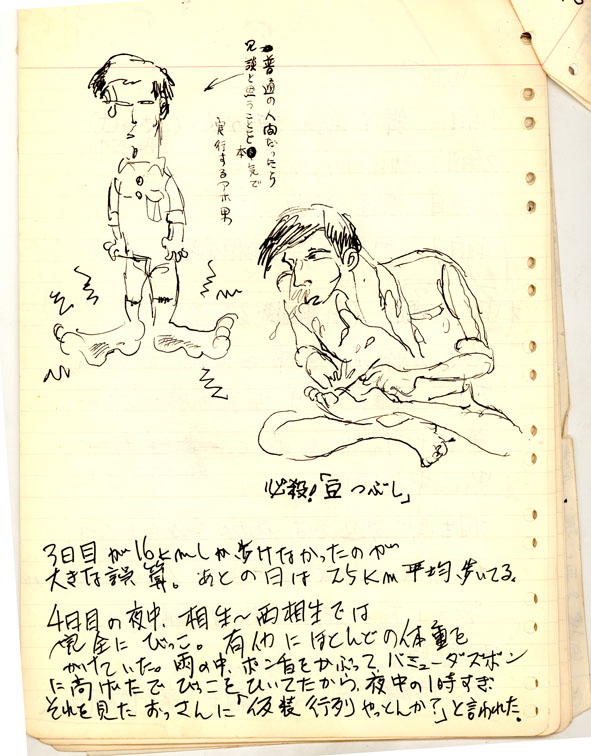 普通の人間だったら
冗談と思うことを
本気で
実行するアホ男
必殺!「豆つぶし」
3日目が16kmしか歩けなかったのが
大きな誤算。あとの日は25km平均歩いてる。
4日目の夜中、相生〜西相生では
完全にびっこ。右也にほとんどの体重を
かけていた。雨の中、ポンチョをかぶって、バミューダズボン
に高げたで びっこをひいてたから、夜中の1時すぎ
それを見たおっさんに「仮装行列やっとんか?」と言われた。